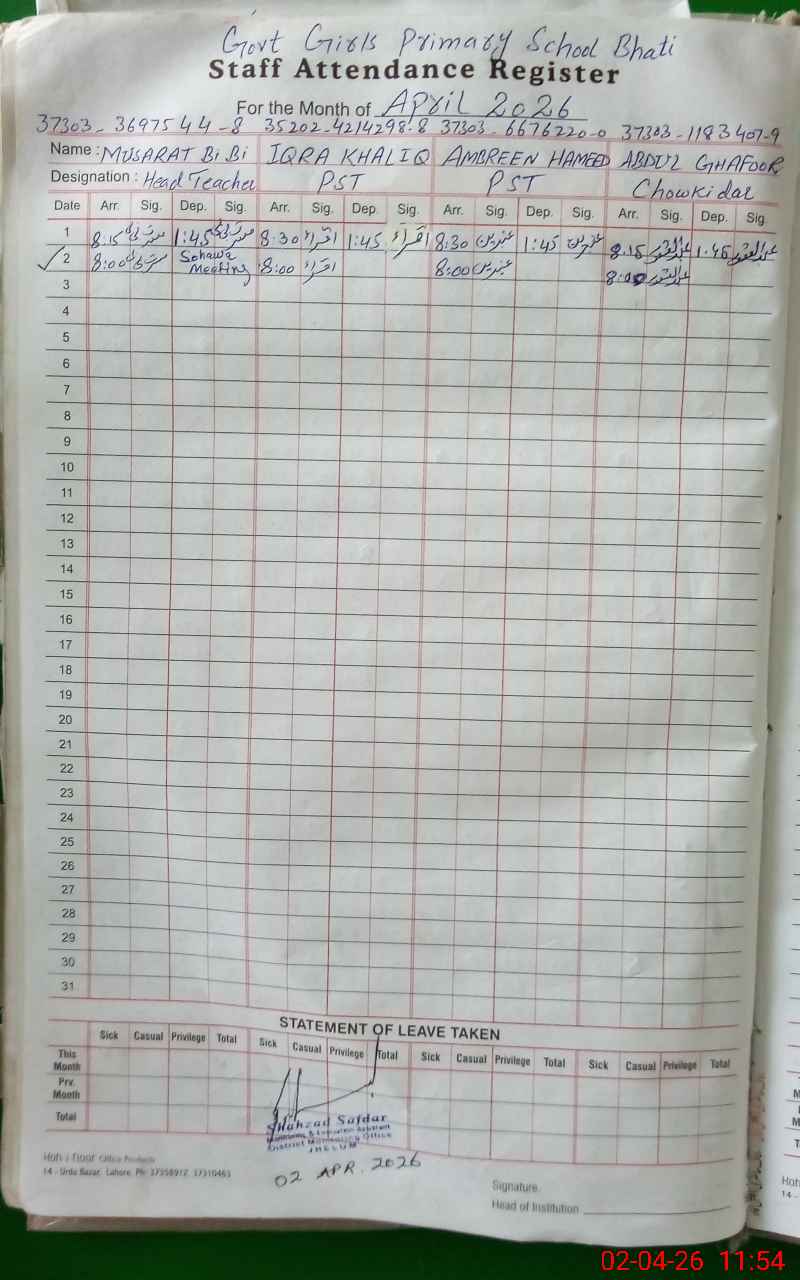 Govt Girls Primary School Bhati
Staff Attendance Register
For the Month of April 2026
37303-3697544-8 35202-4214298-8 37303-6676220-0 37303-1183407-9
Name : MUSARAT BiBi IQRA KHALIQ AMBREEN HAMEED ABDUL GHAFOOR
Designation : Head Teacher PST PST Chowkidar
Date Arr. Sig. Dep. Sig. Arr. Sig. Dep. Sig. Arr. Sig. Dep. Sig. Arr. Sig. Dep. Sig.
1 8:15 1:45 8:30 اقراء 1:45 اقراء 8:30 عنبرین 1:45 عنبرین 8:15 عبدالغفور 1:45 عبدالغفور
2 8:00 Sohawa Meeting 8:00 اقراء 8:00 عنبرین 8:00 عبدالغفور
3
4
5
6
7
8
9
10
11
12
13
14
15
16
17
18
19
20
21
22
23
24
25
26
27
28
29
30
31
STATEMENT OF LEAVE TAKEN
Sick Casual Privilege Total Sick Casual Privilege Total Sick Casual Privilege Total Sick Casual Privilege Total
This Month
Prv. Month
Total
Shahzad Safdar
District Monitoring Office
JHELUM
02 APR. 2026
Office Products
14 - Urdu Bazar, Lahore. Ph: 37358912, 37310463
Signature.
Head of Institution
02-04-26 11:54